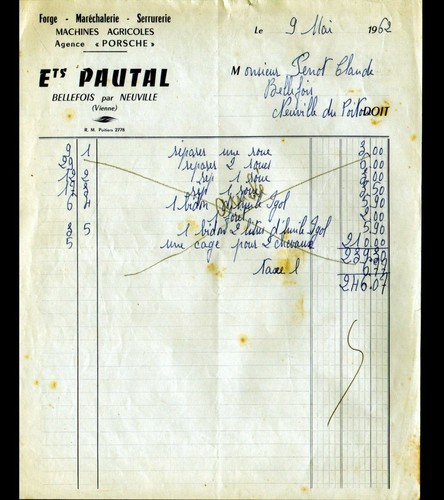 Forge - Maréchalerie - Serrurerie
MACHINES AGRICOLES
Agence « PORSCHE »
Ets PAUTAL
BELLEFOIS par NEUVILLE
(Vienne)
R. M. Poitiers 2775
Le 9 Mai 1962
Monsieur Penot Claude
Bellefois
Neuville du Poitou DOIT
9 1 réparer une roue 3,00
réparer 2 roues
rep 1 roue
6 4 1 bidon d'huile Igol 5,90
3 5 1 bidon 2 litres d'huile Igol 5,90
5 une cage pour 2 chevaux 210,00
Taxe l 6,77
246,07